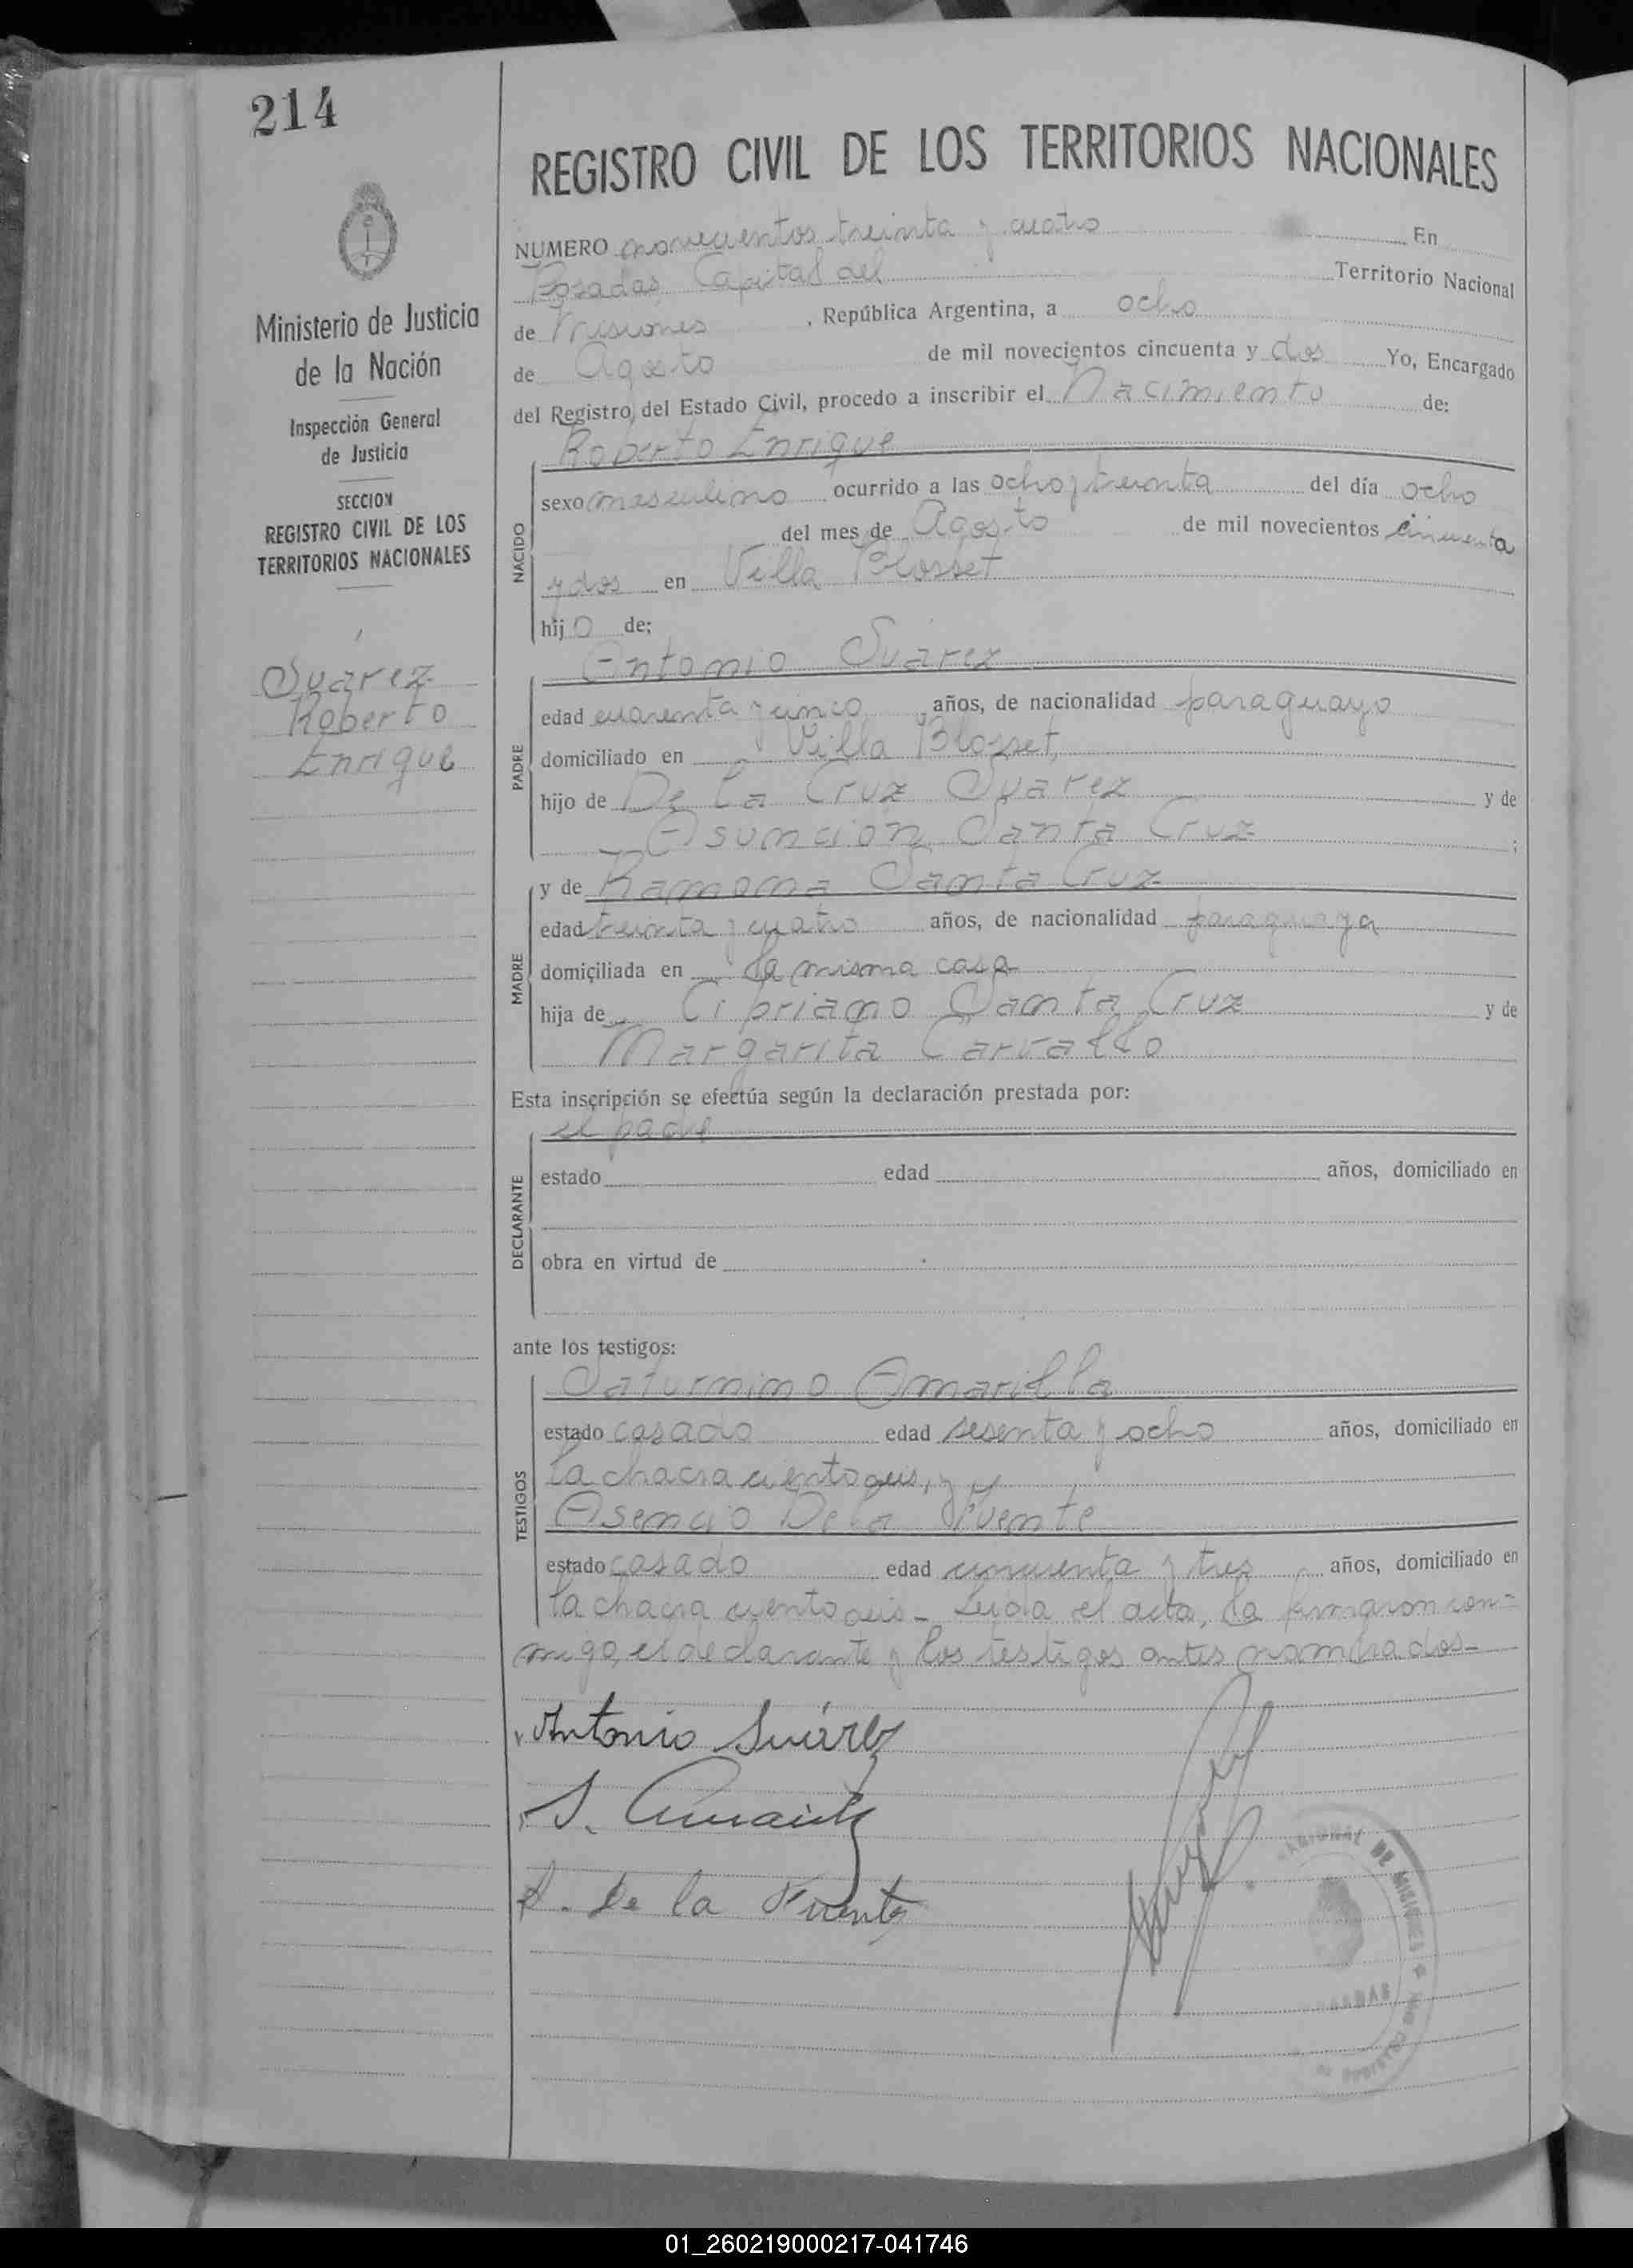 214
Ministerio de Justicia
de la Nación
Inspección General
de Justicia
SECCION
REGISTRO CIVIL DE LOS
TERRITORIOS NACIONALES
Suárez
Roberto
Enrique
REGISTRO CIVIL DE LOS TERRITORIOS NACIONALES
NUMERO novecientos treinta y cuatro En
Posadas, Capital del Territorio Nacional
de Misiones, República Argentina, a ocho
de Agosto de mil novecientos cincuenta y dos Yo, Encargado
del Registro del Estado Civil, procedo a inscribir el Nacimiento de:
Roberto Enrique
NACIDO
sexo masculino ocurrido a las ocho y treinta del día ocho
del mes de Agosto de mil novecientos cincuenta
y dos en Villa Blosset
hijo de:
Antonio Suárez
PADRE
edad cuarenta y cinco años, de nacionalidad paraguayo
domiciliado en Villa Blosset,
hijo de De La Cruz Suarez y de
Asunción Santa Cruz ;
y de Ramona Santa Cruz
MADRE
edad treinta y cuatro años, de nacionalidad paraguaya
domiciliada en la misma casa
hija de Cipriano Santa Cruz y de
Margarita Carvallo
Esta inscripción se efectúa según la declaración prestada por:
el padre
DECLARANTE
estado edad años, domiciliado en
obra en virtud de
ante los testigos:
Saturnino Amarilla
TESTIGOS
estado casado edad sesenta y ocho años, domiciliado en
la chacra ciento seis, y
Asencio De la Fuente
estado casado edad cincuenta y tres años, domiciliado en
la chacra ciento seis - Leida el acta, la firmaron con-
migo, el declarante y los testigos antes nombrados-
Antonio Suárez
S. Amarilla
A. de la Fuente
NACIONAL DE MISIONES
POSADAS
01_260219000217-041746